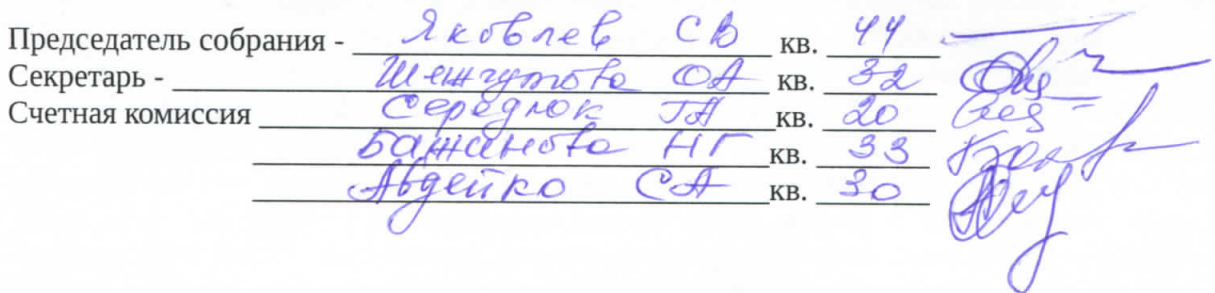 Председатель собрания - Яковлев СВ кв. 44
Секретарь - ОА кв. 32
Счетная комиссия Середнюк ГА кв. 20
Бажанова НГ кв. 33
Авдейко СА кв. 30